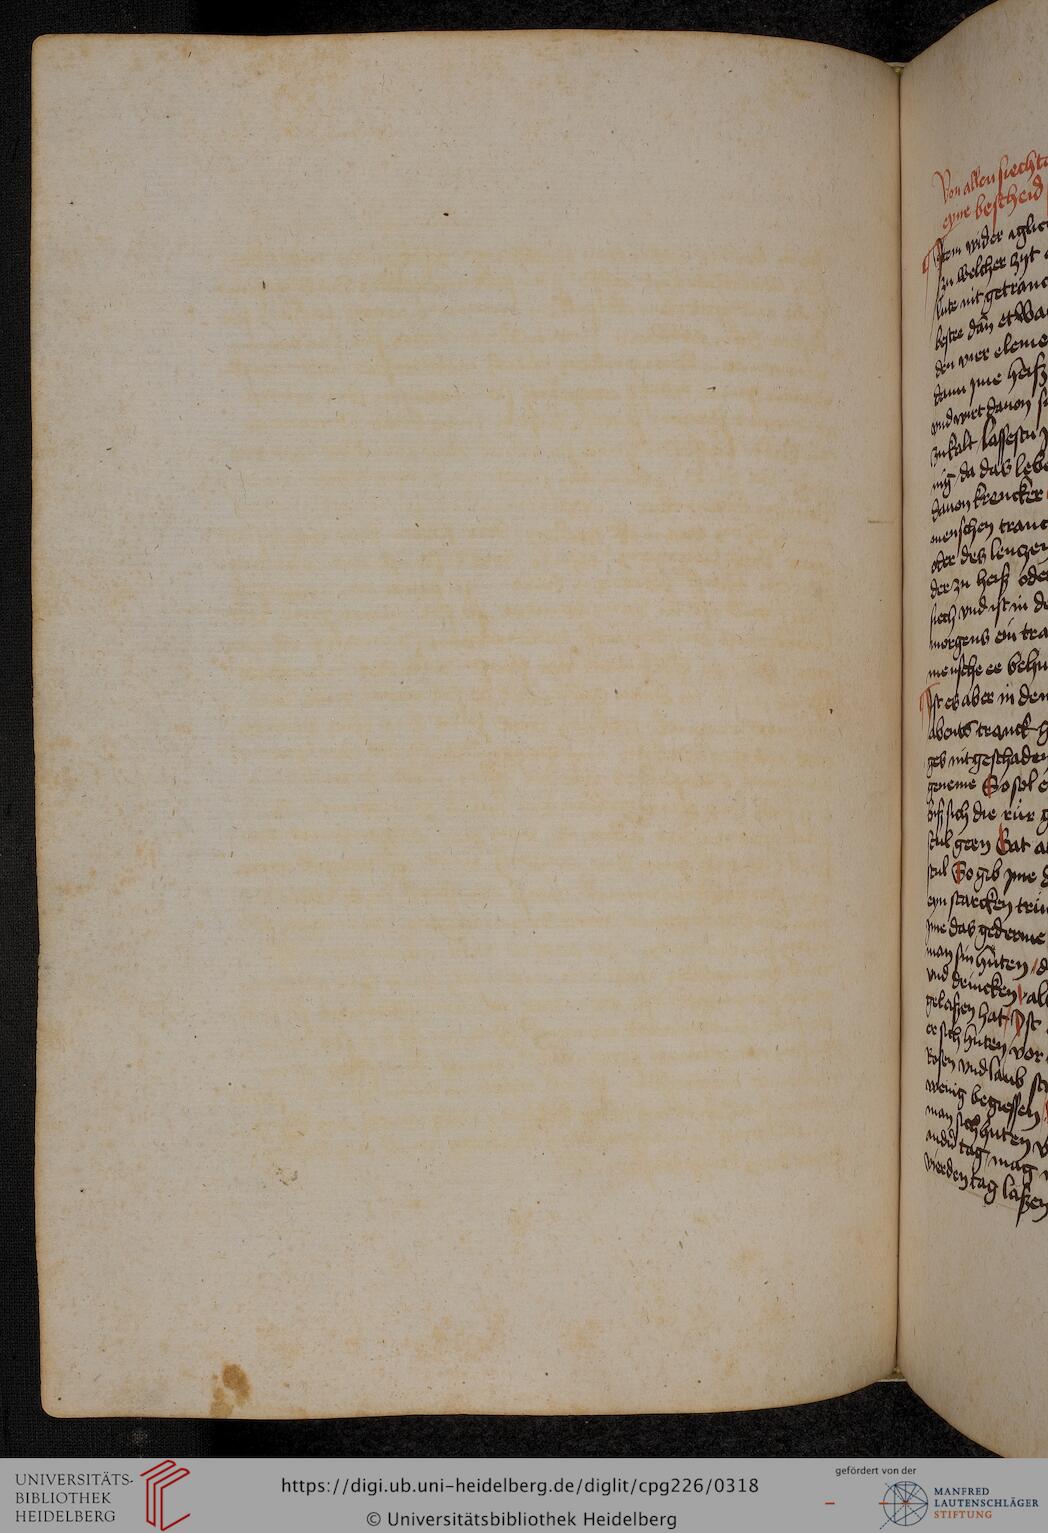 Von allen siecht
eyne bescheid
Jtem wider iglic
zu welcher zijt
lute nit getranc
bestre dan etwa
den vier eleme
dann yme heiß
vnd wirt dauon s
zu kalt lassestu
nig da das lebe
dauon krencker
menschen tranc
oder des lenczen
der zu heiß oder
siech vnd ist in de
morgens ein tra
mensche er behu
Jst es aber in dem
abents tranck h
geb nit geschaden
geneme So sol e
biß sich die rür g
stul gern Hat a
stul So gib yme
eyn starcken trin
yme das gederme
man sin hüten d
vnd drincken al
gelaßen hat Jst
er sich huten vor
Rosen vnd laub st
wenig begiessen
man sich huten v
andn tag mag
vierden tag laßen
UNIVERSITÄTS-
BIBLIOTHEK
HEIDELBERG
https://digi.ub.uni-heidelberg.de/diglit/cpg226/0318
© Universitätsbibliothek Heidelberg
gefördert von der
MANFRED
LAUTENSCHLÄGER
STIFTUNG